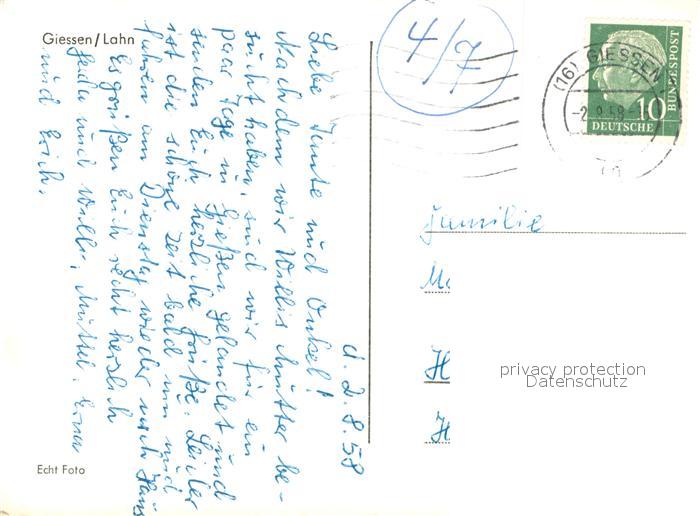 Giessen/Lahn
4/7
(16) GIESSEN
-2.8.58-
10
DEUTSCHE
BUNDESPOST
d. 2. 8. 58
Liebe Tante und Onkel!
Nachdem wir Willis Mutter be-
sucht haben, sind wir für ein
paar Tage in Gießen gelandet und
senden Euch herzliche Grüße. Leider
ist die schöne Zeit bald um und
fahren am Dienstag wieder nach Haus
Es grüßen Euch recht herzlich
und Willi, Mutter, Erna
und Erich.
Familie
M
H
H
privacy protection
Datenschutz
Echt Foto